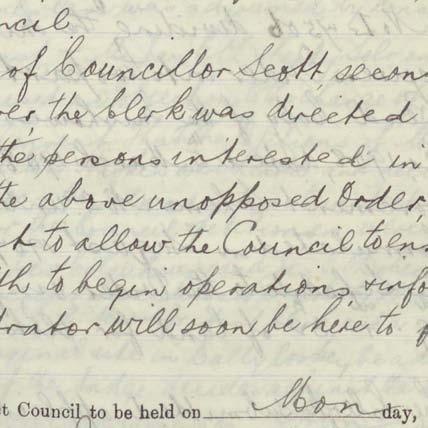 ncil
of Councillor Scott, secon
ver, the Clerk was directed
the persons interested in
the above unopposed Order,
t to allow the Council to en
th to begin operations & info
trator will soon be here to
ct Council to be held on Mon day,